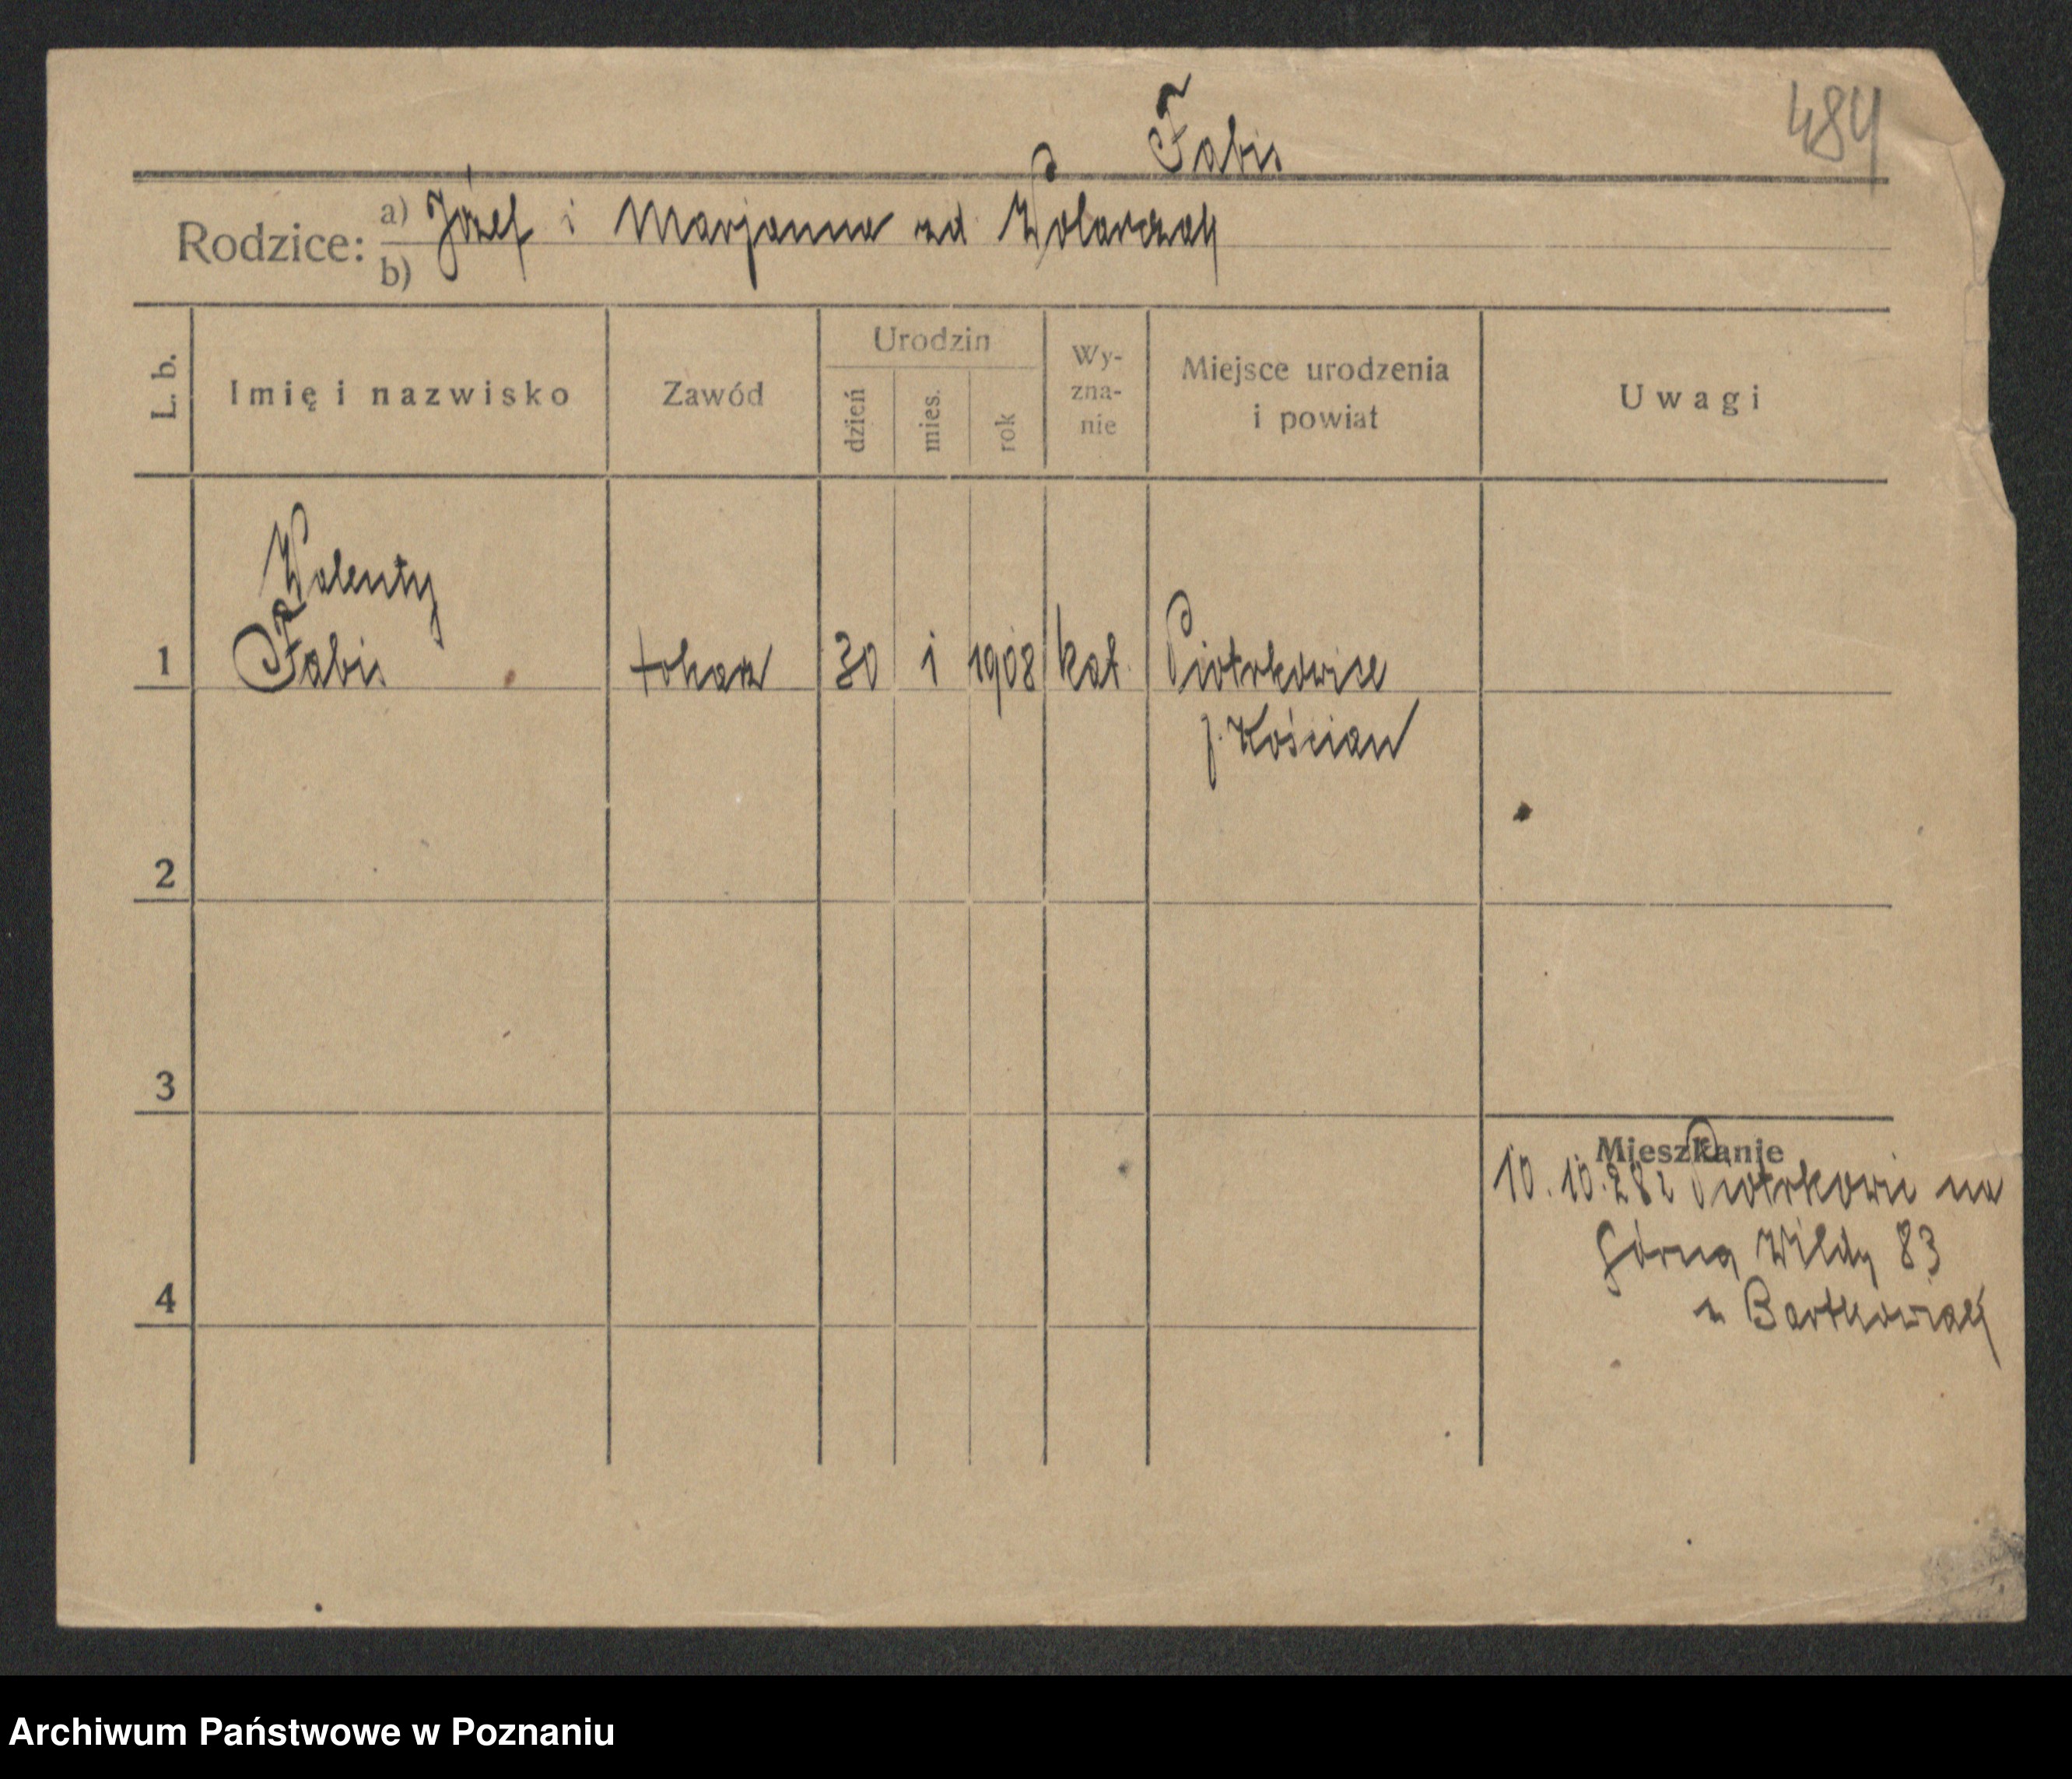 484
Fabis
Rodzice: a) Józef i Marjanna zd Wolarczak
b)
L. b. Imię i nazwisko Zawód Urodzin dzień mies. rok Wy-zna-nie Miejsce urodzenia i powiat Uwagi
Walenty
1 Fabis tokarz 30 1 1908 kat. Piotrkowice
p. Kościan
2
3
Mieszkanie
10.10.28 z Piotrkowic na
Górną Wildę 83
4
u Bartkowiak
Archiwum Państwowe w Poznaniu